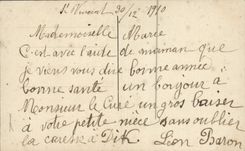 St Vincent 30/12 1910
Mademoiselle Marie
C'est avec l'aide de maman que
je viens vous dire bonne année
bonne santé un bonjour à
Monsieur le Curé un gros baiser
à votre petite nièce sans oublier
la caresse à Dik. Léon Baron